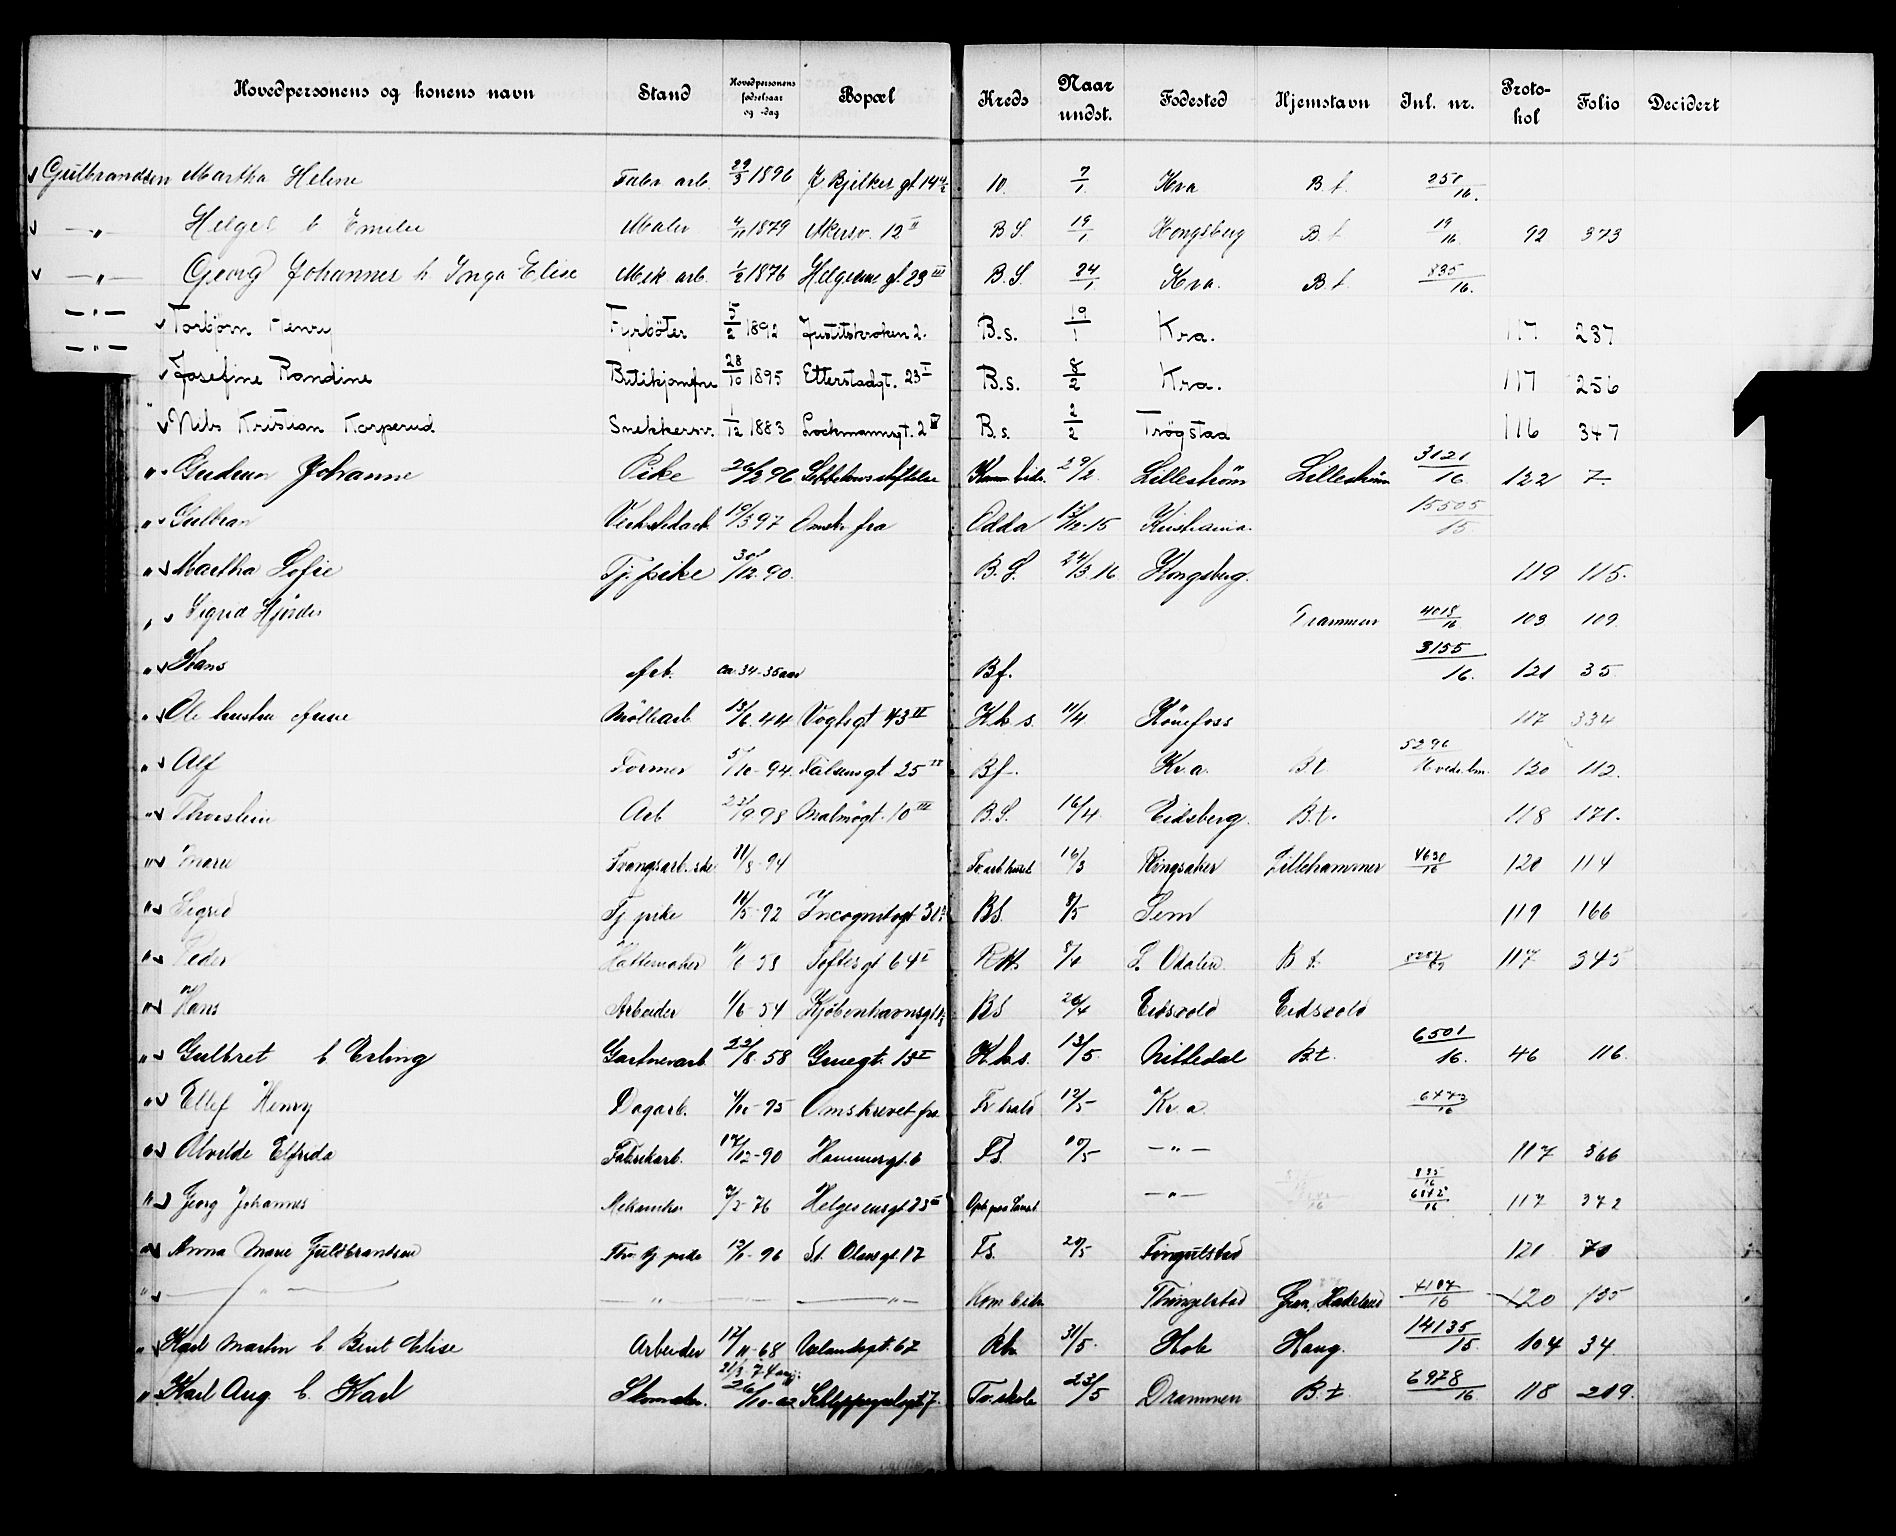 Hovedpersonens og konens navn Stand Hovedpersonens fødselsaar og -dag Bopæl Kreds Naar undst. Fødested Hjemstavn Inl. nr. Proto-kol Folio Decidert
Gulbrandsen Martha Helene Fabr arb. 29/3 1896 10. 7/1 Kra B.t. 251/16.
—"— Helge b Emilie Maler 1879 Akersv. 12 II B.S. 19/1 Kongsberg B.t. 19/16 92 373
—"— Georg Johannes h Inga Elise Mek. arb. 1/2 1876 Helgesens gt. 23 III B.S. 24/1 Kra. B.t. 835/16.
—"— Torbjørn Henry Fyrbøter 5/2 1892 Justitskroken 2. B.s. 19/1 Kra. 117 237
—"— Josefine Randine Butikjomfru 28/10 1895 Etterstadgt. 23 I B.s. 8/2 Kra. 117 256
" Nils Kristian Korperud Snekkersv. 1/12 1883 Lockmannsgt. 2 B.s. 2/2 Trøgstad 116 347
" Gudrun Johanne Pike 26/12 96 29/2. Lillestrøm Lillestrøm 3121/16 122 7.
" Gulbran 19/3 97 Omskr. fra Odda 15 Kristiania. 15505/15
" Martha Sofie Tj. pike 30/12. 90. B.S. 24/3 16 Kongsberg. 119 115.
" Sigrid Hjørdis Drammen 4018/16 103 109
" Hans Arb. ca. 34-35 aar Bf. 3155/16. 121 35
" Ole hustru Møllearb 13/6. 44 Vogtsgt 43 II K.k.s. 11/4 Hønefoss 117 334
" Alf Former 5/10-94. Falsensgt 25 Bf. Kr.a. B.t 5296 120 112.
" Thorstein Arb 23/9 98 Malmøgt. 10 III B.S. 16/4 Eidsberg. B.t. 118 171.
" Marie Tvangsarb. 11/8-94 Tv arb huset 16/3 Ringsaker Lillehammer 4630/16 120 114
" Sigrid Tj pike 16/5-92 Incognitogt BS. 9/5 Sem 119 166
" Peder Hattemaker Toftesgt 64 I S. Odalen B t. 117 345
" Hans Arbeider 1/6-54 Kjøbenhavnsgt BS 26/4 Eidsvold Eidsvold
" Gulbret b Erling Gartnerarb. 22/8. 58 Gruegt. 13 I K.k.s. 13/5. Nittedal B.t. 6501/16. 46 116.
" Ellef Henry Dagarb. Omskrevet fra 12/5 Kr.a. 6473/16
" Alvilde Elfrida Fabrikarb. 17/12-90 Hammersgt. 6 FS. 10/5 —"— 117 366
" Georg Johannes Mekaniker 76 Helgesensgt 23 III —"— 835/16 6812/16 117 372
" Anna Marie Guldbrandsen 96 St. Olavsgt. 17 FS. 20/5 Tingelstad 121 70
" —"— " — —"— Kom bidr Thingelstad Gran, Hadeland 4107/16 120 135
" Karl Martin b Berit Elise Arbeider 17/11-68 67 31/5. Hole Haug. 14135/15. 104 34.
" Karl Aug. b. Karl Skomaker. 26/10-02 Schleppegrelsgt 7. Tv. skole 23/5 Drammen B.t 6978/16 118 219.